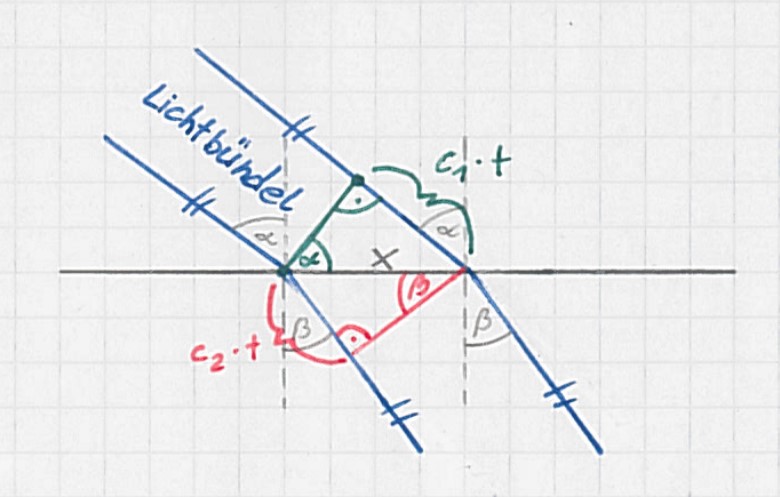 Lichtbündel
c₁·t
α
α
α
x
β
β
β
c₂·t